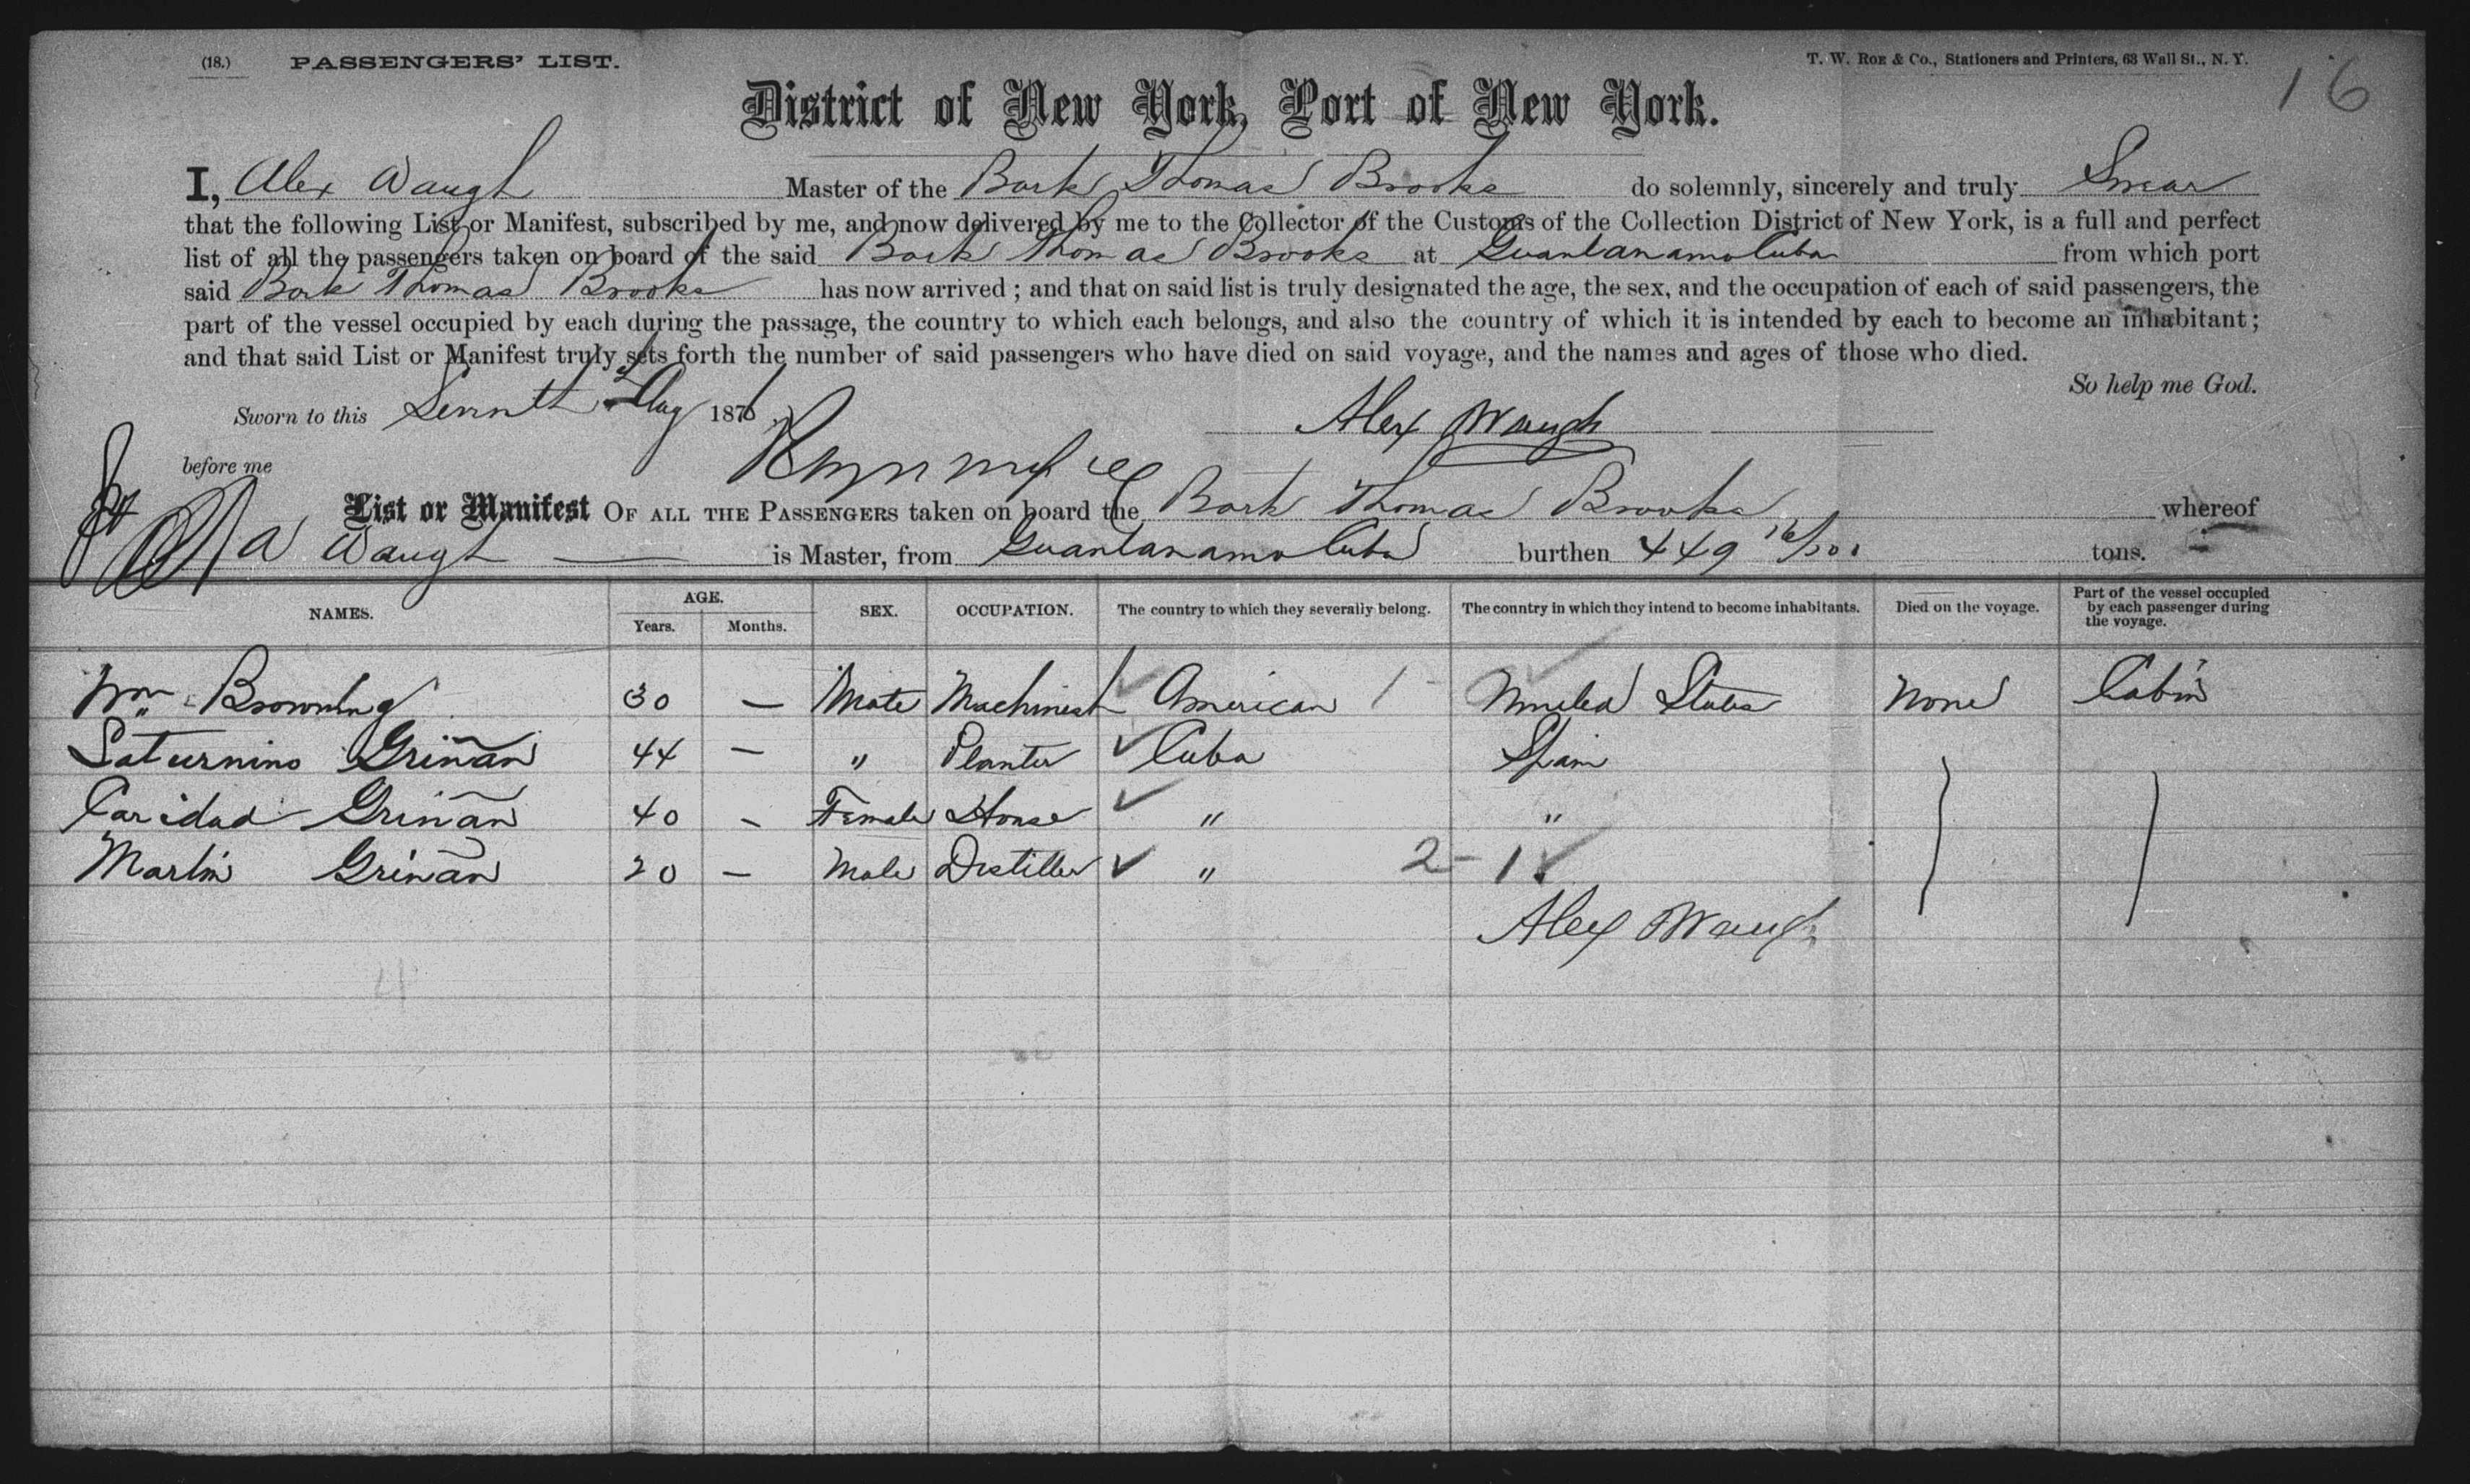 (18.) PASSENGERS' LIST. T. W. ROE & CO., Stationers and Printers, 63 Wall St., N. Y.
16
District of New York, Port of New York.
I, Alex Waugh Master of the Bark Thomas Brooks do solemnly, sincerely and truly Swear
that the following List or Manifest, subscribed by me, and now delivered by me to the Collector of the Customs of the Collection District of New York, is a full and perfect
list of all the passengers taken on board of the said Bark Thomas Brooks at Guantanamo Cuba from which port
said Bark Thomas Brooks has now arrived; and that on said list is truly designated the age, the sex, and the occupation of each of said passengers, the
part of the vessel occupied by each during the passage, the country to which each belongs, and also the country of which it is intended by each to become an inhabitant;
and that said List or Manifest truly sets forth the number of said passengers who have died on said voyage, and the names and ages of those who died.
So help me God.
Sworn to this Aug 187 Alex Waugh
before me
List or Manifest OF ALL THE PASSENGERS taken on board the Bark Thomas Brooks whereof
A Waugh is Master, from Guantanamo Cuba burthen 449 tons.
NAMES. AGE. Years. Months. SEX. OCCUPATION. The country to which they severally belong. The country in which they intend to become inhabitants. Died on the voyage. Part of the vessel occupied by each passenger during the voyage.
Wm Browning 30 — Male Machinist American 1 United States None Cabin
Saturnino Griñan 44 — " Planter Cuba Spain
Caridad Griñan 40 - Female House " "
Martin Griñan 20 — Male Distiller " 2-1
Alex Waugh